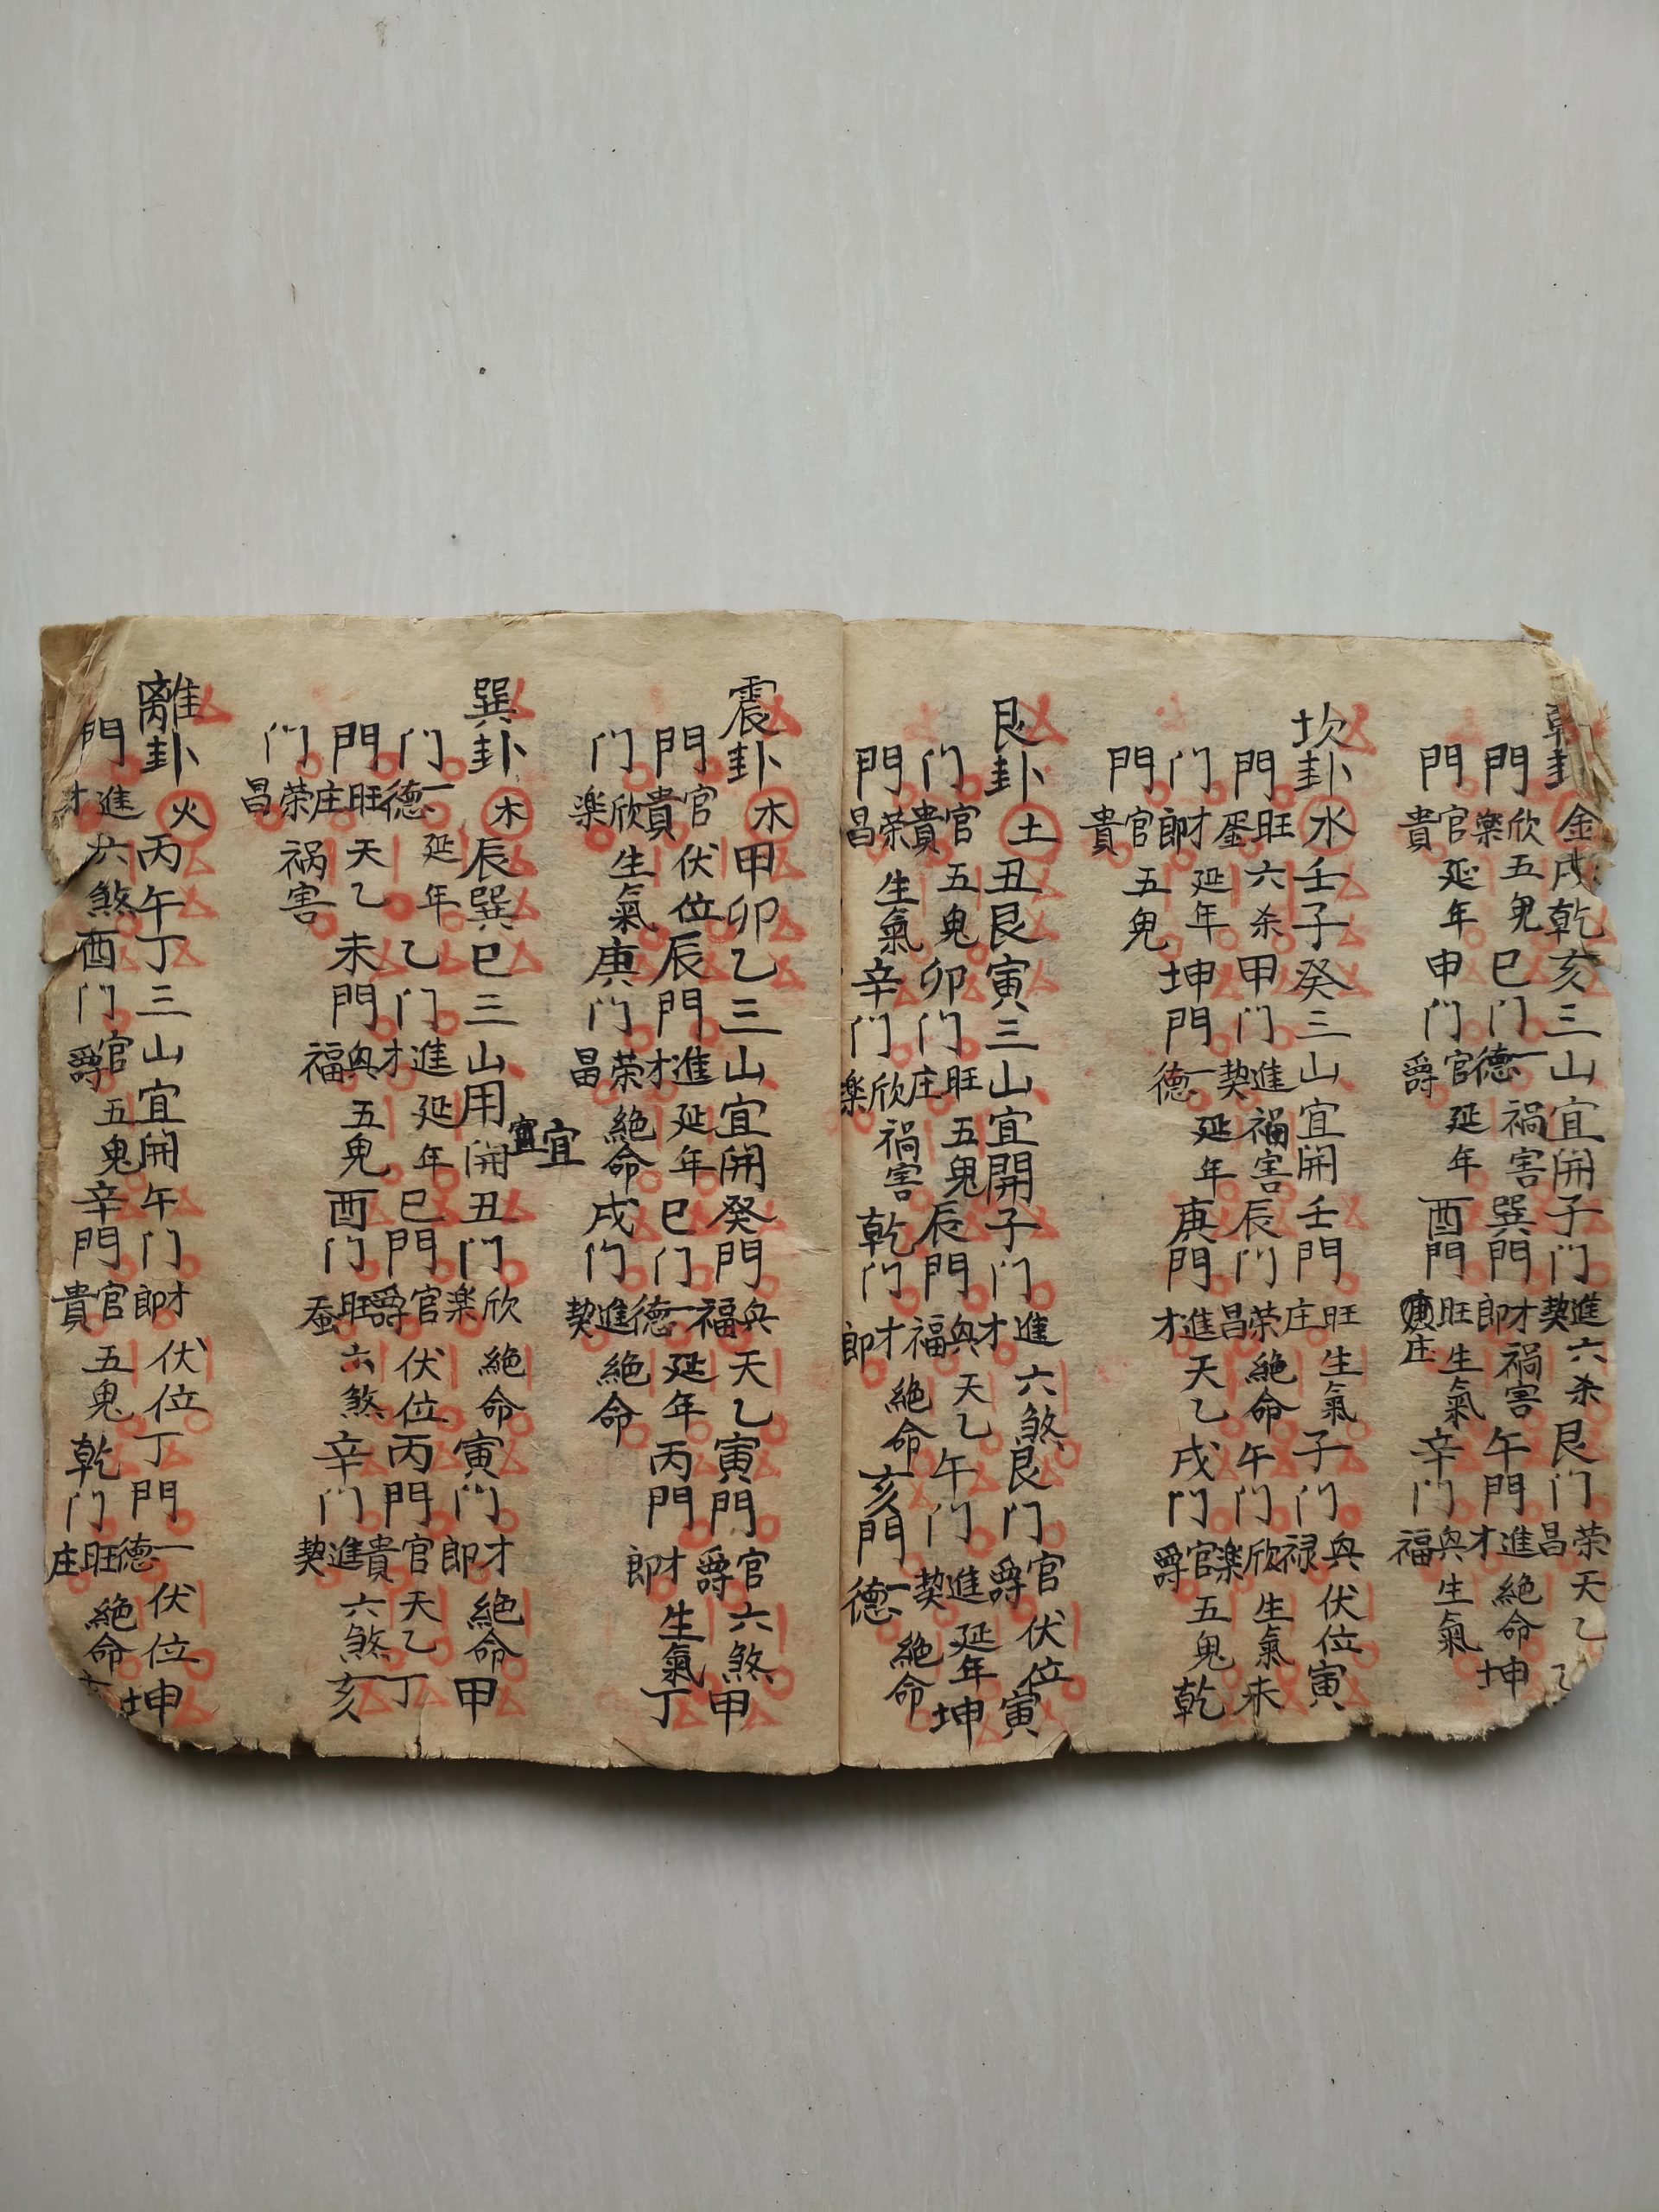 乾卦金戌乾亥三山宜開子门進契六杀艮门荣昌天乙
門欣楽五鬼巳门一德祸害巽門才郎祸害午門進才絶命坤
門官貴延年申门官爵延年酉門旺庄生氣辛门兴福生氣
坎卦水壬子癸三山宜開壬門旺庄生氣子门兴禄伏位寅
門旺蚕六杀甲门進契祸害辰门荣昌絶命午门欣楽生氣未
门才郎延年坤門一德延年庚門進才天乙戌门官爵五鬼乾
門官貴五鬼
艮卦土丑艮寅三山宜開子门進才六煞艮门官爵伏位寅
门官貴五鬼卯门旺庄五鬼辰門兴福天乙午门進契延年坤
門荣昌生氣辛门欣楽祸害乾门才郎絶命亥門一德絶命
震卦木甲卯乙三山宜開癸門兴福天乙寅門官爵六煞甲
門官貴伏位辰門進才延年巳门一德延年丙門才郎生氣丁
门欣楽生氣庚门荣昌絶命戌门進契絶命
宜
巽卦木辰巽巳三山用開丑门欣楽絶命寅门才郎絶命甲
门一德延年乙门進才延年巳門官爵伏位丙門官貴天乙丁
門旺庄天乙未門兴福五鬼酉门旺蚕六煞辛门進契六煞亥
门荣昌祸害
離卦火丙午丁三山宜開午门才郎伏位丁門一德伏位坤
門進才六煞酉门官爵五鬼辛門官貴五鬼乾门旺庄絶命